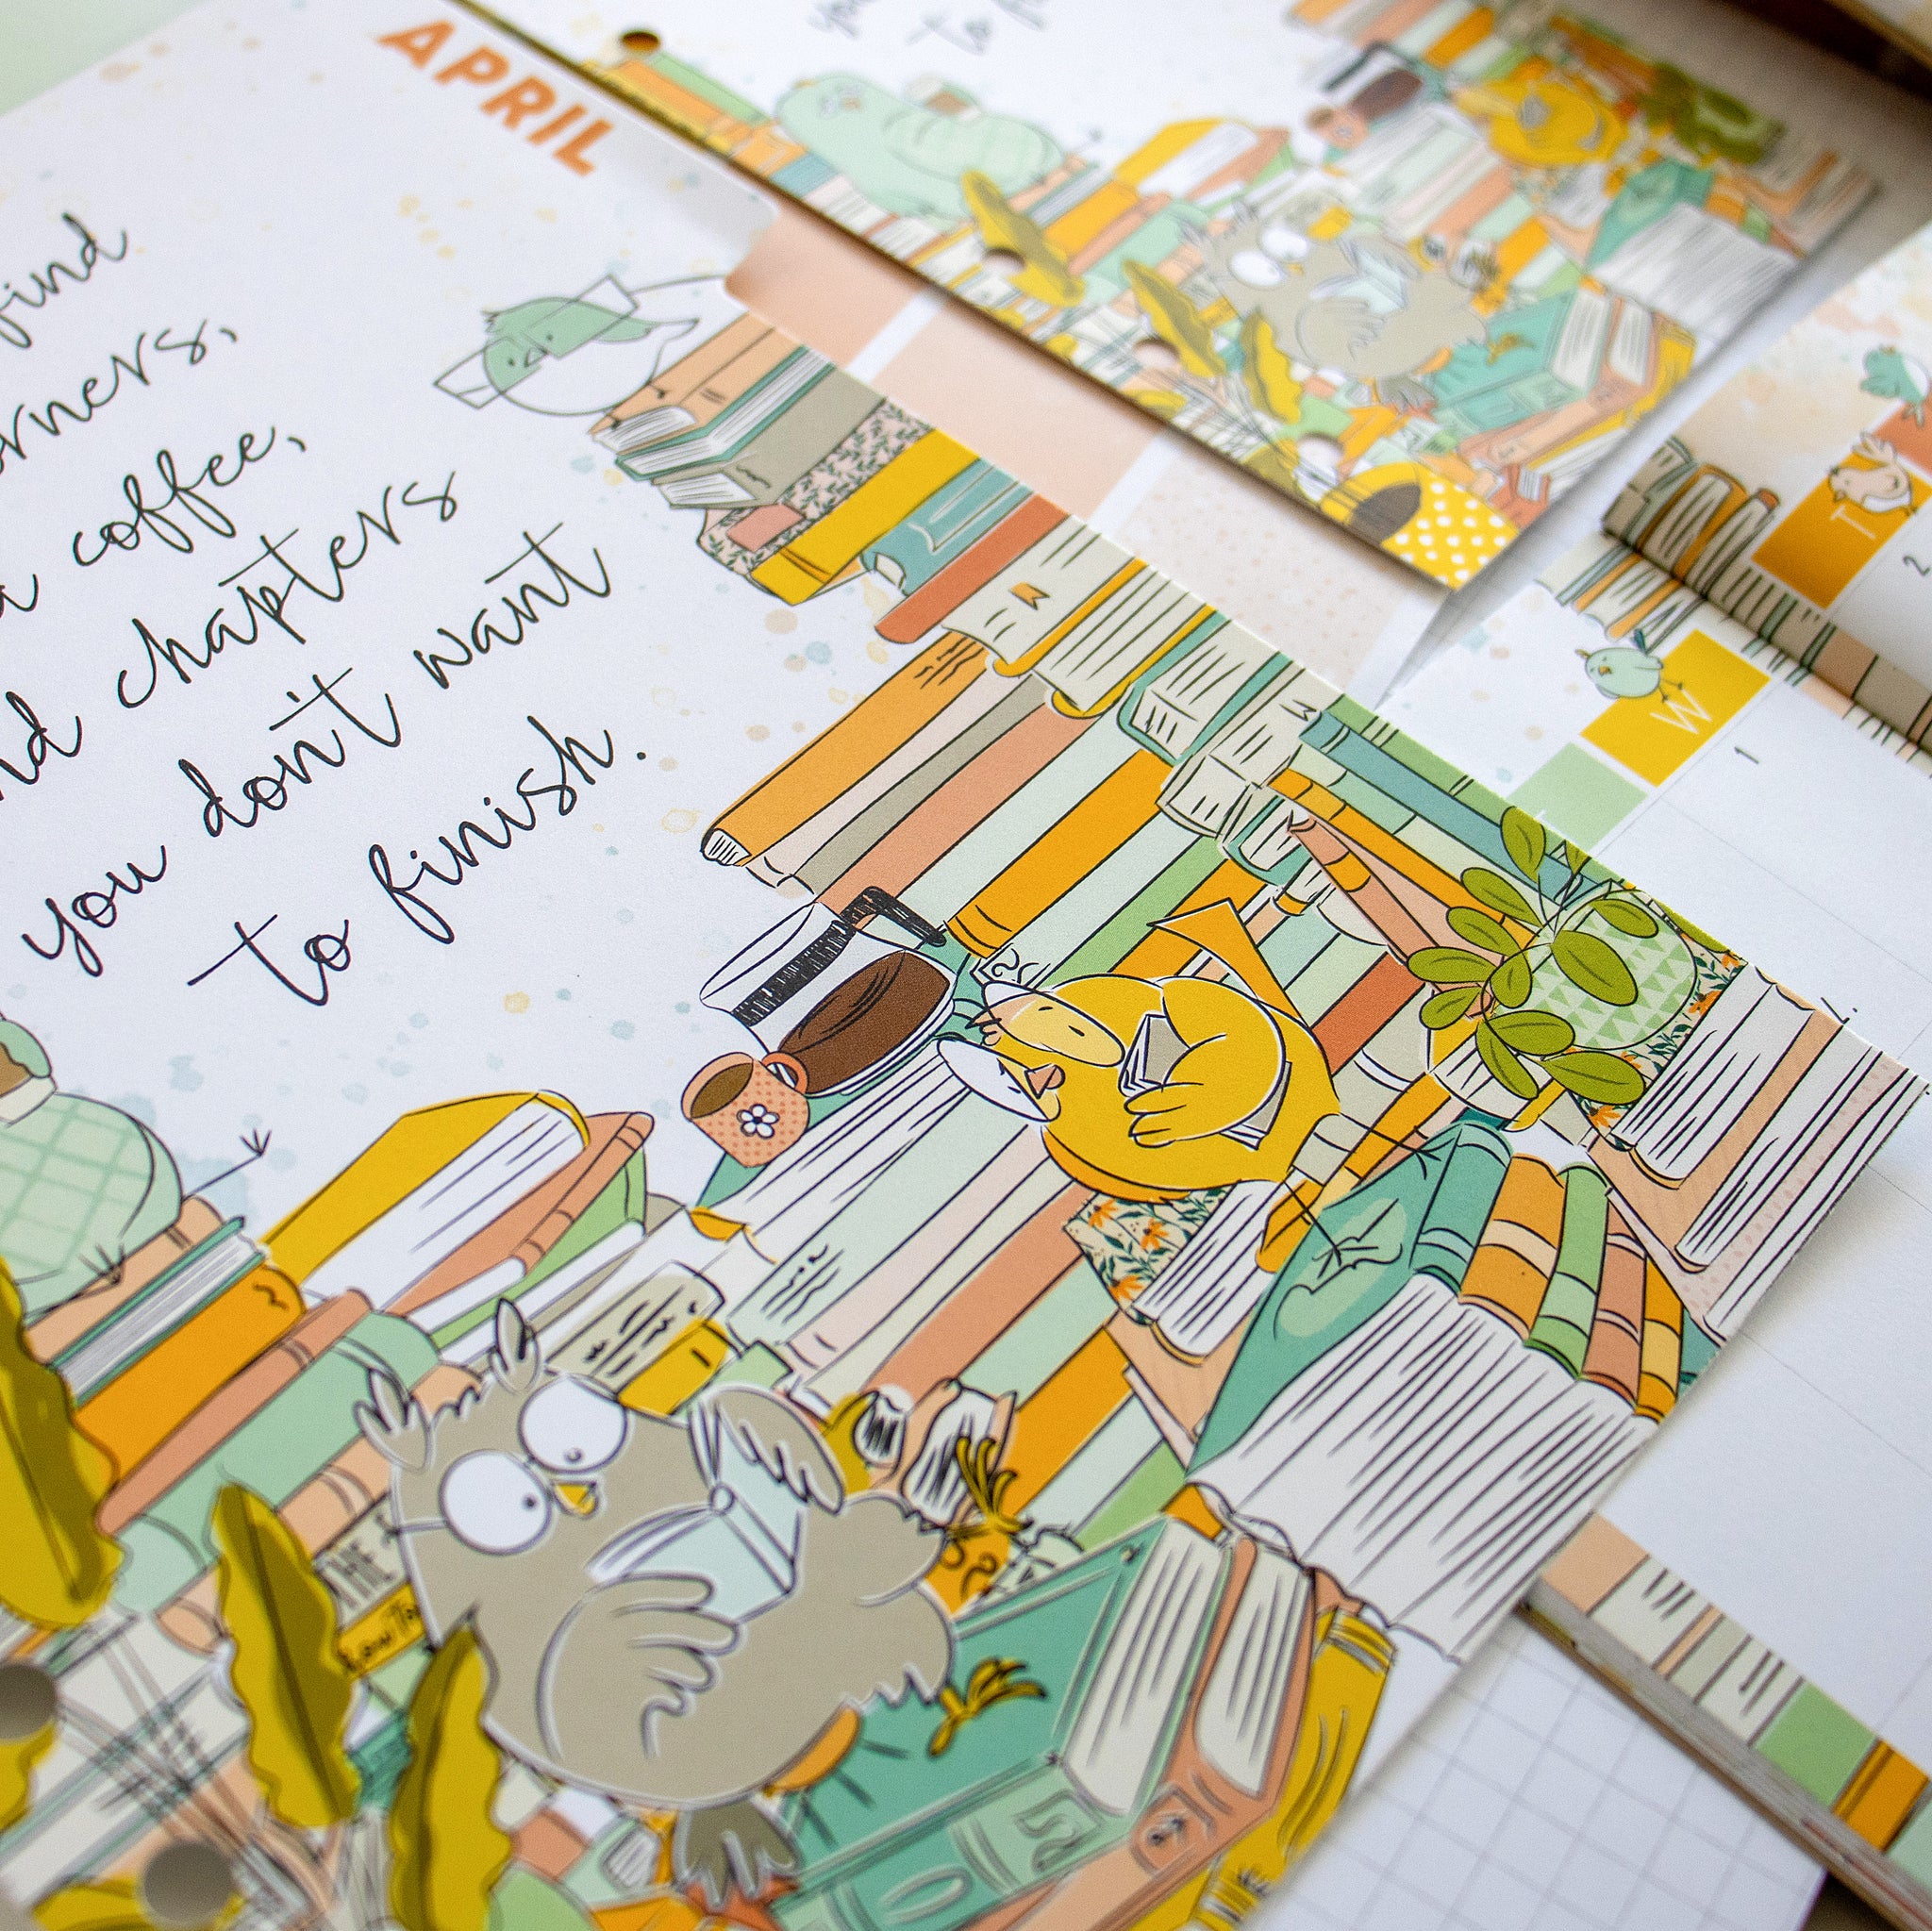 APRIL
find
corners,
a coffee,
and chapters
you don't want
to finish.
THE
HOW TO
T
2
W
1